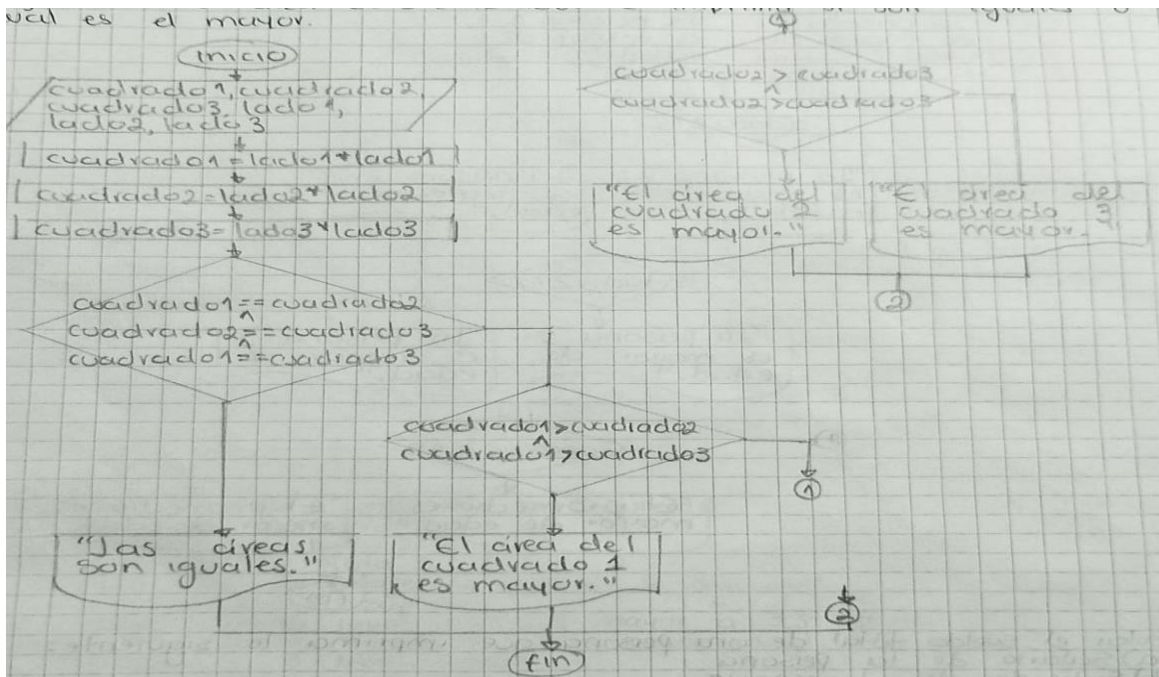 es el mayor.
inicio
cuadrado1, cuadrado2,
cuadrado3, lado1,
lado2, lado3
cuadrado1=lado1*lado1
cuadrado2=lado2*lado2
cuadrado3=lado3*lado3
cuadrado1==cuadrado2
^
cuadrado2==cuadrado3
^
cuadrado1==cuadrado3
"Las áreas
son iguales."
cuadrado1>cuadrado2
^
cuadrado1>cuadrado3
"El área del
cuadrado 1
es mayor."
1
2
fin
1
cuadrado2>cuadrado3
^
cuadrado2>cuadrado3
"El área del
cuadrado 2
es mayor."
"El área del
cuadrado 3
es mayor."
2